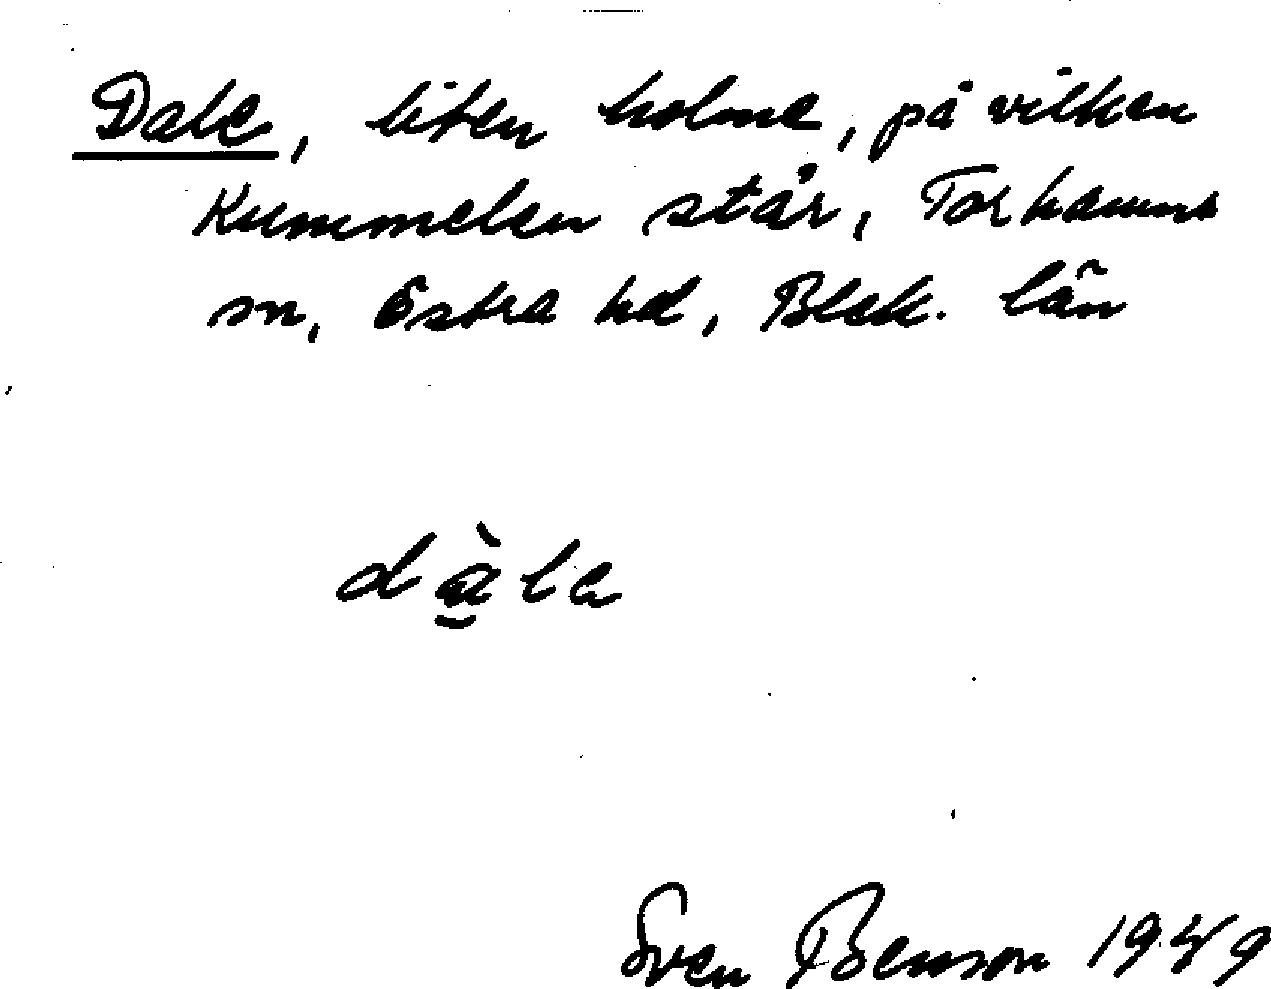 Dale, liten holme, på vilken
Kummelen står, Torhamns
sn, Östra hd, Blek. län
dàla
Sven Benson 1949